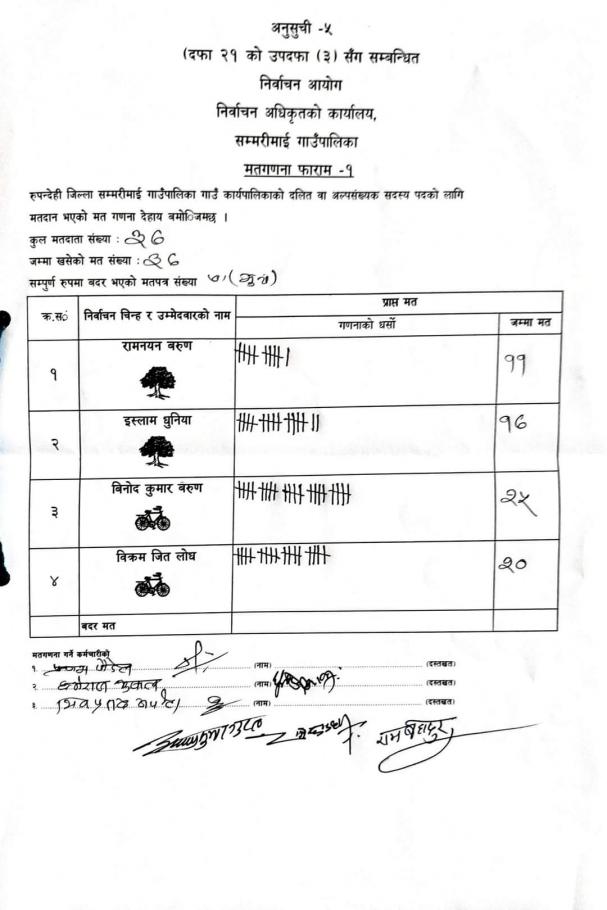 अनुसुची -५
(दफा २१ को उपदफा (३) सँग सम्बन्धित
निर्वाचन आयोग
निर्वाचन अधिकृतको कार्यालय,
सम्मरीमाई गाउँपालिका
मतगणना फाराम -१
रुपन्देही जिल्ला सम्मरीमाई गाउँपालिका गाउँ कार्यपालिकाको दलित वा अल्पसंख्यक सदस्य पदको लागि
मतदान भएको मत गणना देहाय बमोजिमछ ।
कुल मतदाता संख्या : ३७
जम्मा खसेको मत संख्या : ३७
सम्पुर्ण रुपमा बदर भएको मतपत्र संख्या
क्र.सं निर्वाचन चिन्ह र उम्मेदवारको नाम प्राप्त मत
गणनाको धर्सो जम्मा मत
१ रामनयन बरुण ११
२ इस्लाम धुनिया १७
३ बिनोद कुमार बरुण २५
४ विक्रम जित लोध २०
बदर मत
मतगणना गर्ने कर्मचारीको
१. (नाम) (दस्तखत)
२. (नाम) (दस्तखत)
३. (नाम) (दस्तखत)
राम बहादुर